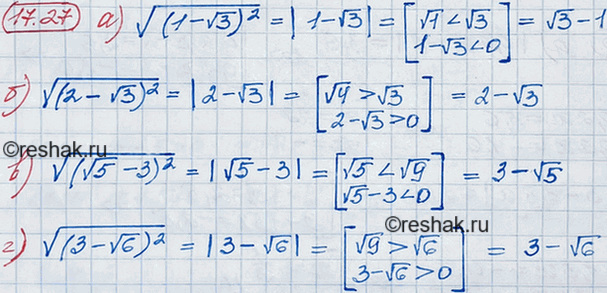 17.27 а) √(1-√3)² = |1-√3| = [√1 < √3 1-√3<0] = √3-1
б) √(2-√3)² = |2-√3| = [√4 > √3 2-√3>0] = 2-√3
©reshak.ru
в) √(√5-3)² = |√5-3| = [√5 < √9 √5-3<0] = 3-√5
©reshak.ru
г) √(3-√6)² = |3-√6| = [√9 > √6 3-√6>0] = 3-√6